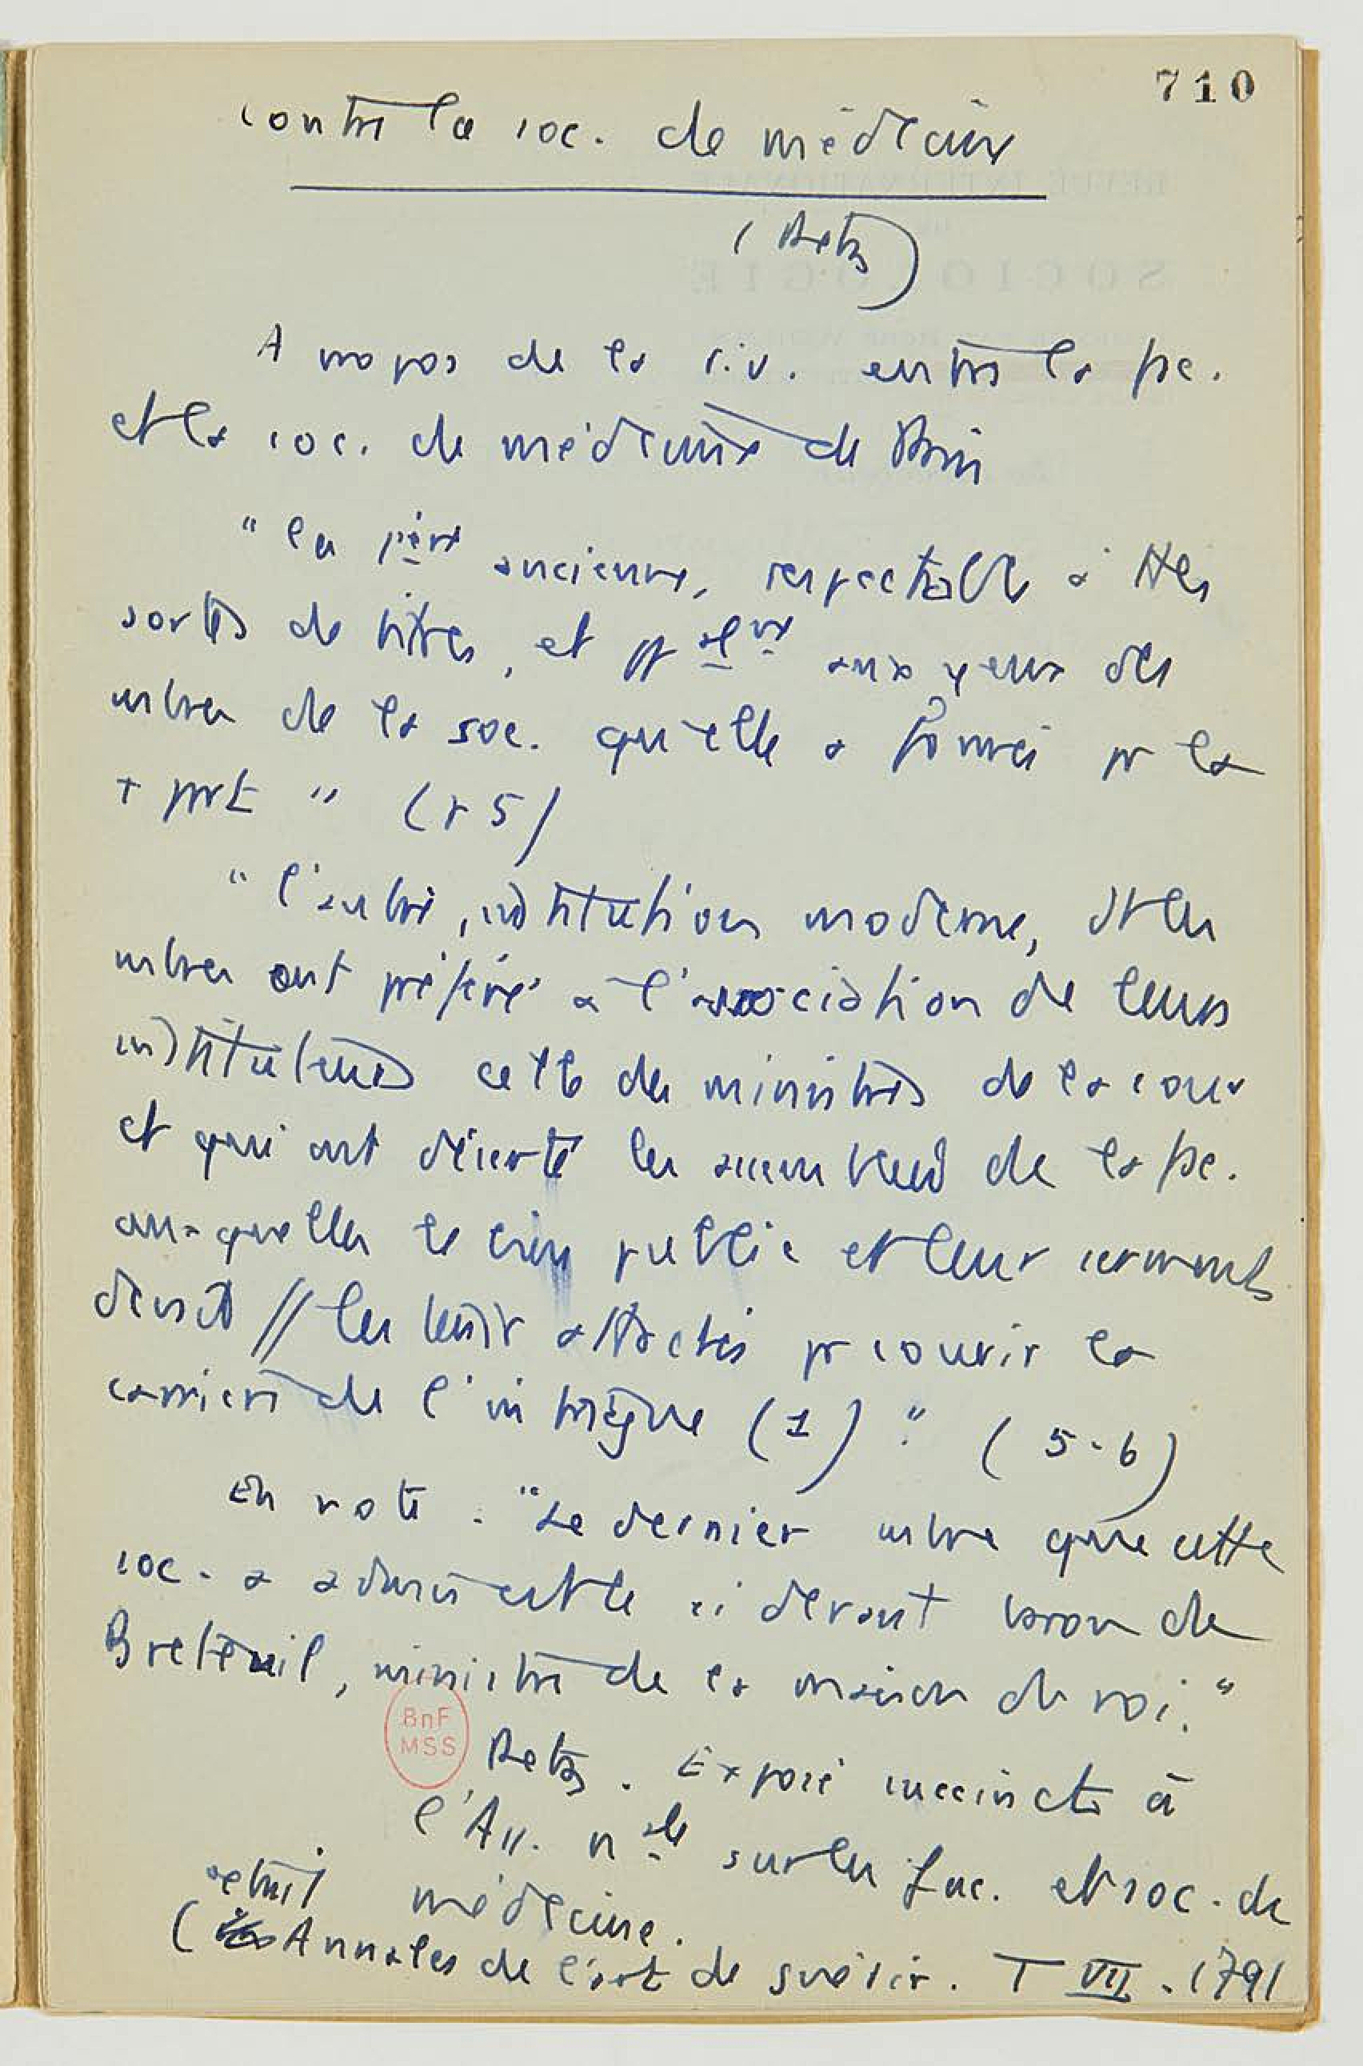 710
contre la soc. de médecine
(Retz)
A propos de la riv. entre la fac.
et la soc. de médecine de Paris
" la 1ère ancienne, respectable à ttes
sortes de titres, et pptalmt aux yeux des
mbres de la soc. qu'elle a formés pr la
+ part " (p 5)
" l'autre, institution moderne, dt les
mbres ont préféré à l'association de leurs
instituteurs celle des ministres de la cour
et qui ont déserté les assemblées de la fac.
auxquelles le bien public et leur serments
devait // les tenir attachés pr courir la
carrière de l'intrigue (1) " (5-6)
En note : "Le dernier mbre que cette
soc. a admis est le ci devant baron de
Breteuil, ministre de la maison du roi."
BnF
MSS
Retz. Exposé succinct à
l'Ass. nale sur les fac. et soc. de
médecine.
extrait
( Annales de l'art de guérir. T VII. 1791